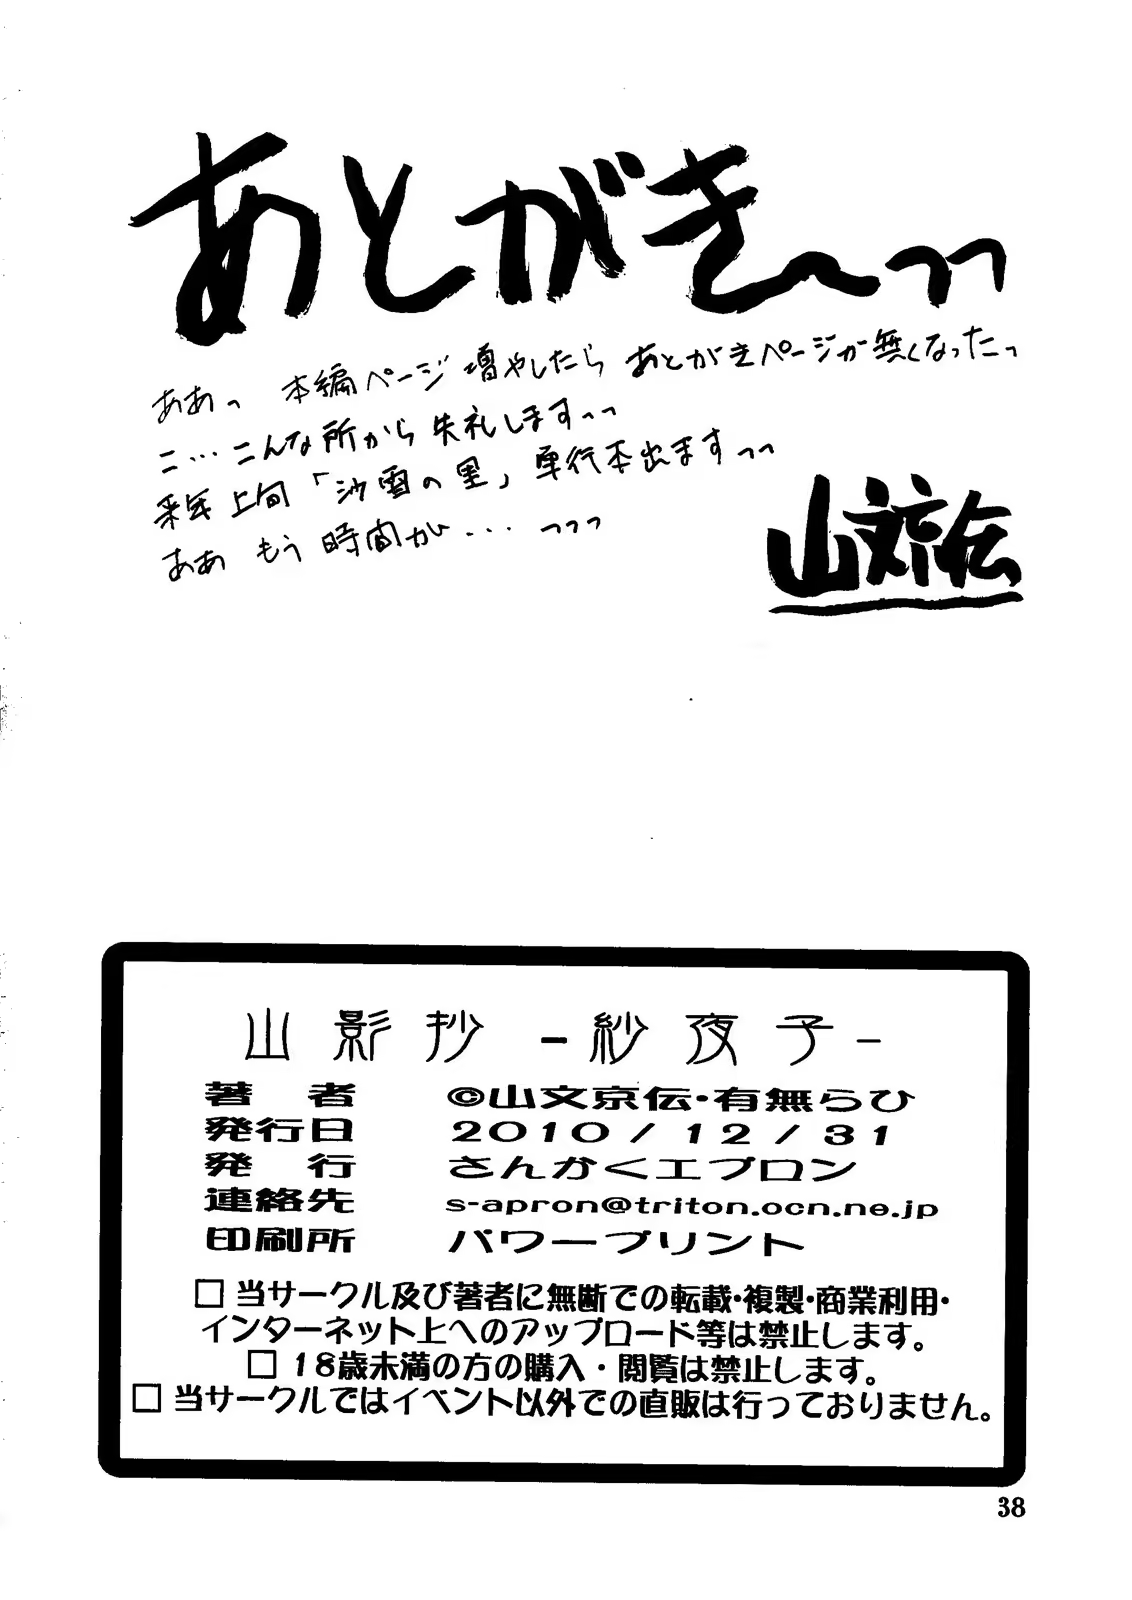 あとがき〜っっ
ああっ 本編ページ増やしたら あとがきページが無くなったっ
こ…こんな所から失礼しますっっ
来年上旬「沙雪の里」単行本出ますっっ
ああ もう時間が… … っっっ
山文京伝
山影抄 -紗夜子-
著者 ©山文京伝・有無らひ
発行日 2010/12/31
発行 さんかくエプロン
連絡先 s-apron@triton.ocn.ne.jp
印刷所 パワープリント
□ 当サークル及び著者に無断での転載・複製・商業利用・
インターネット上へのアップロード等は禁止します。
□ 18歳未満の方の購入・閲覧は禁止します。
□ 当サークルではイベント以外での直販は行っておりません。
38